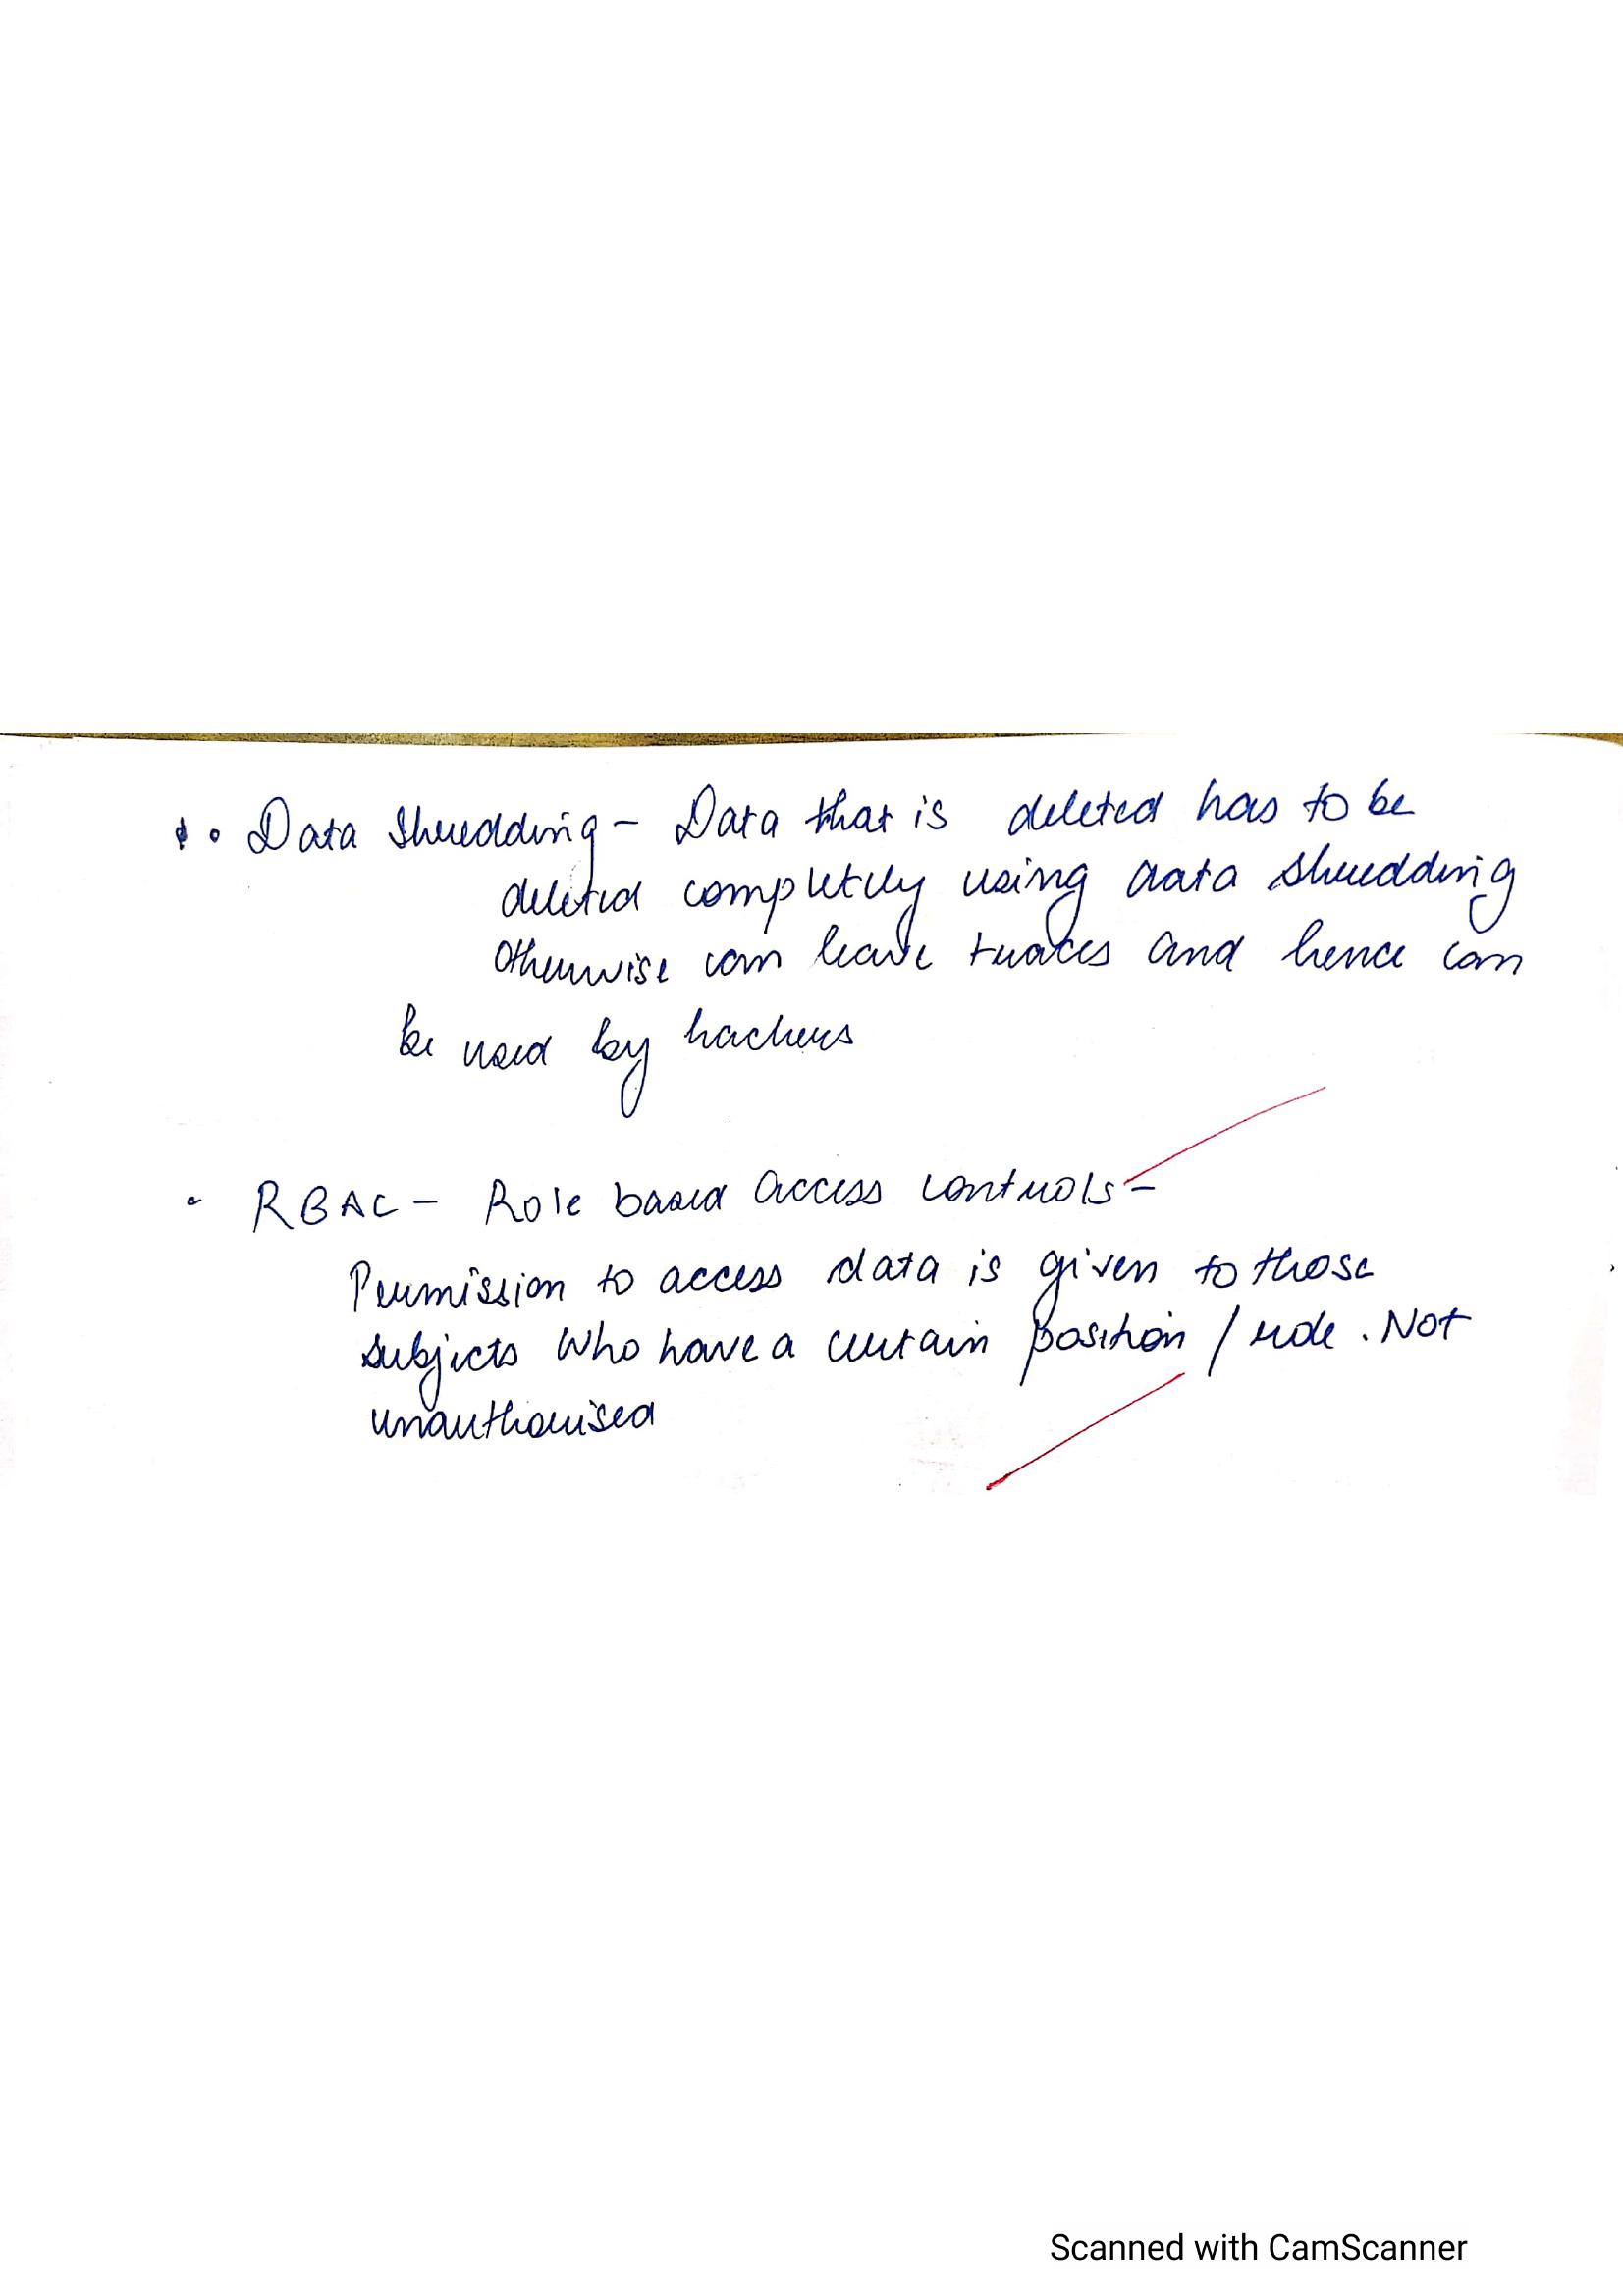 • Data Shredding - Data that is deleted has to be
deleted completely using data shredding
Otherwise can leave traces and hence can
be used by hackers
• RBAC - Role based access controls -
Permission to access data is given to those
subjects who have a certain position / role. Not
unauthorised
Scanned with CamScanner